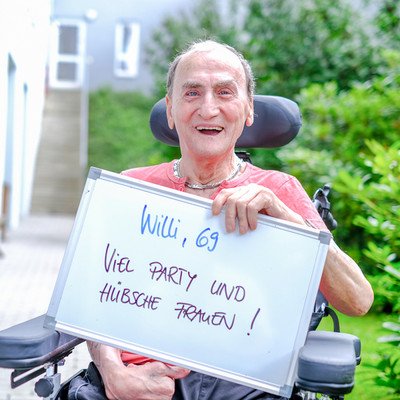 Willi, 69
VIEL PARTY UND
HÜBSCHE FRAUEN!